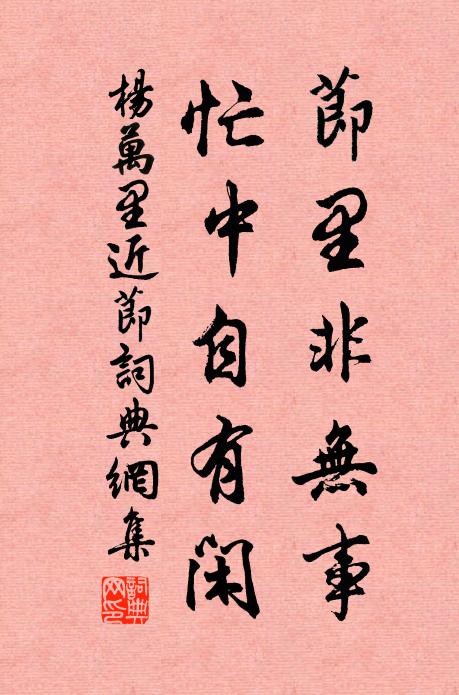 節里非無事
忙中自有閑
楊萬里近節詞典網集
詞典
网印